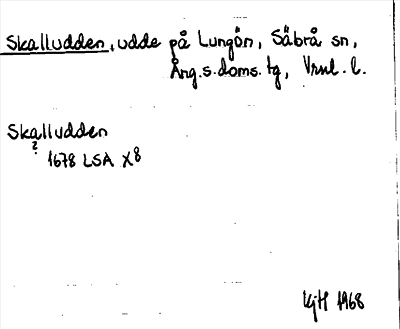 Skalludden, udde på Lungön, Säbrå sn,
Ång.s.doms.tg, Vrnl. l.
Skalludden
?
1678 LSA X8
KjH 1968